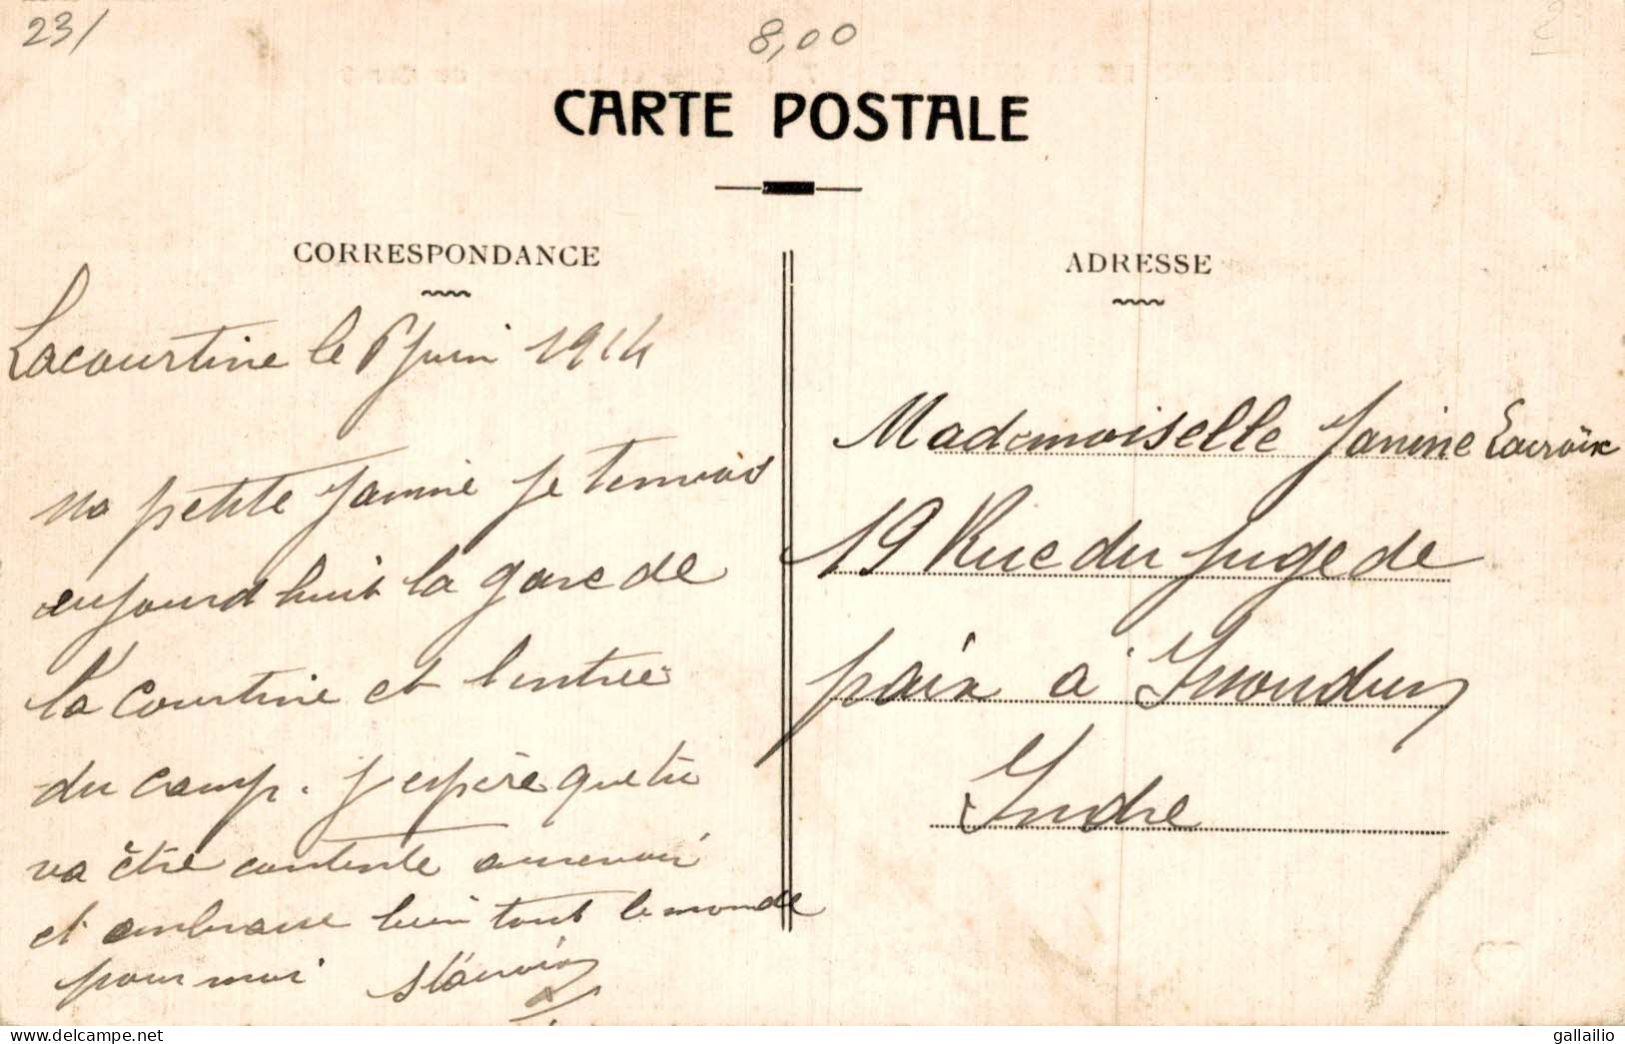 23/
8,00
2
CARTE POSTALE
CORRESPONDANCE
Lacourtine le 6 juin 1914
Ma petite Janine je t'envois
aujourd huit la gare de
la Courtine et l'entrée
du camp. j'espère que tu
va être contente aurevoir
et embrasse bien tout le monde
pour moi
ADRESSE
Mademoiselle Janine Lacroix
19 Rue du juge de
paix a Issoudun
Indre
www.delcampe.net
gallailio